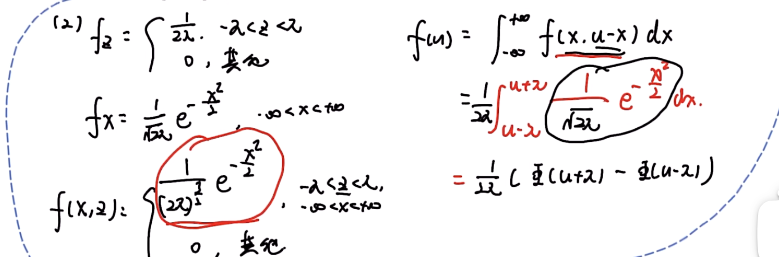 (2) f_z = { 1/2π, -π<z<π
0, 其他
f_x = 1/√2π e^{-x²/2}, -∞<x<+∞
f(x,z) = { 1/(2π)^{3/2} e^{-x²/2}, -π<z<π, -∞<x<+∞
0, 其他
f(u) = ∫_{-∞}^{+∞} f(x, u-x) dx
= 1/2π ∫_{u-π}^{u+π} 1/√2π e^{-x²/2} dx.
= 1/2π ( Φ(u+π) - Φ(u-π) )